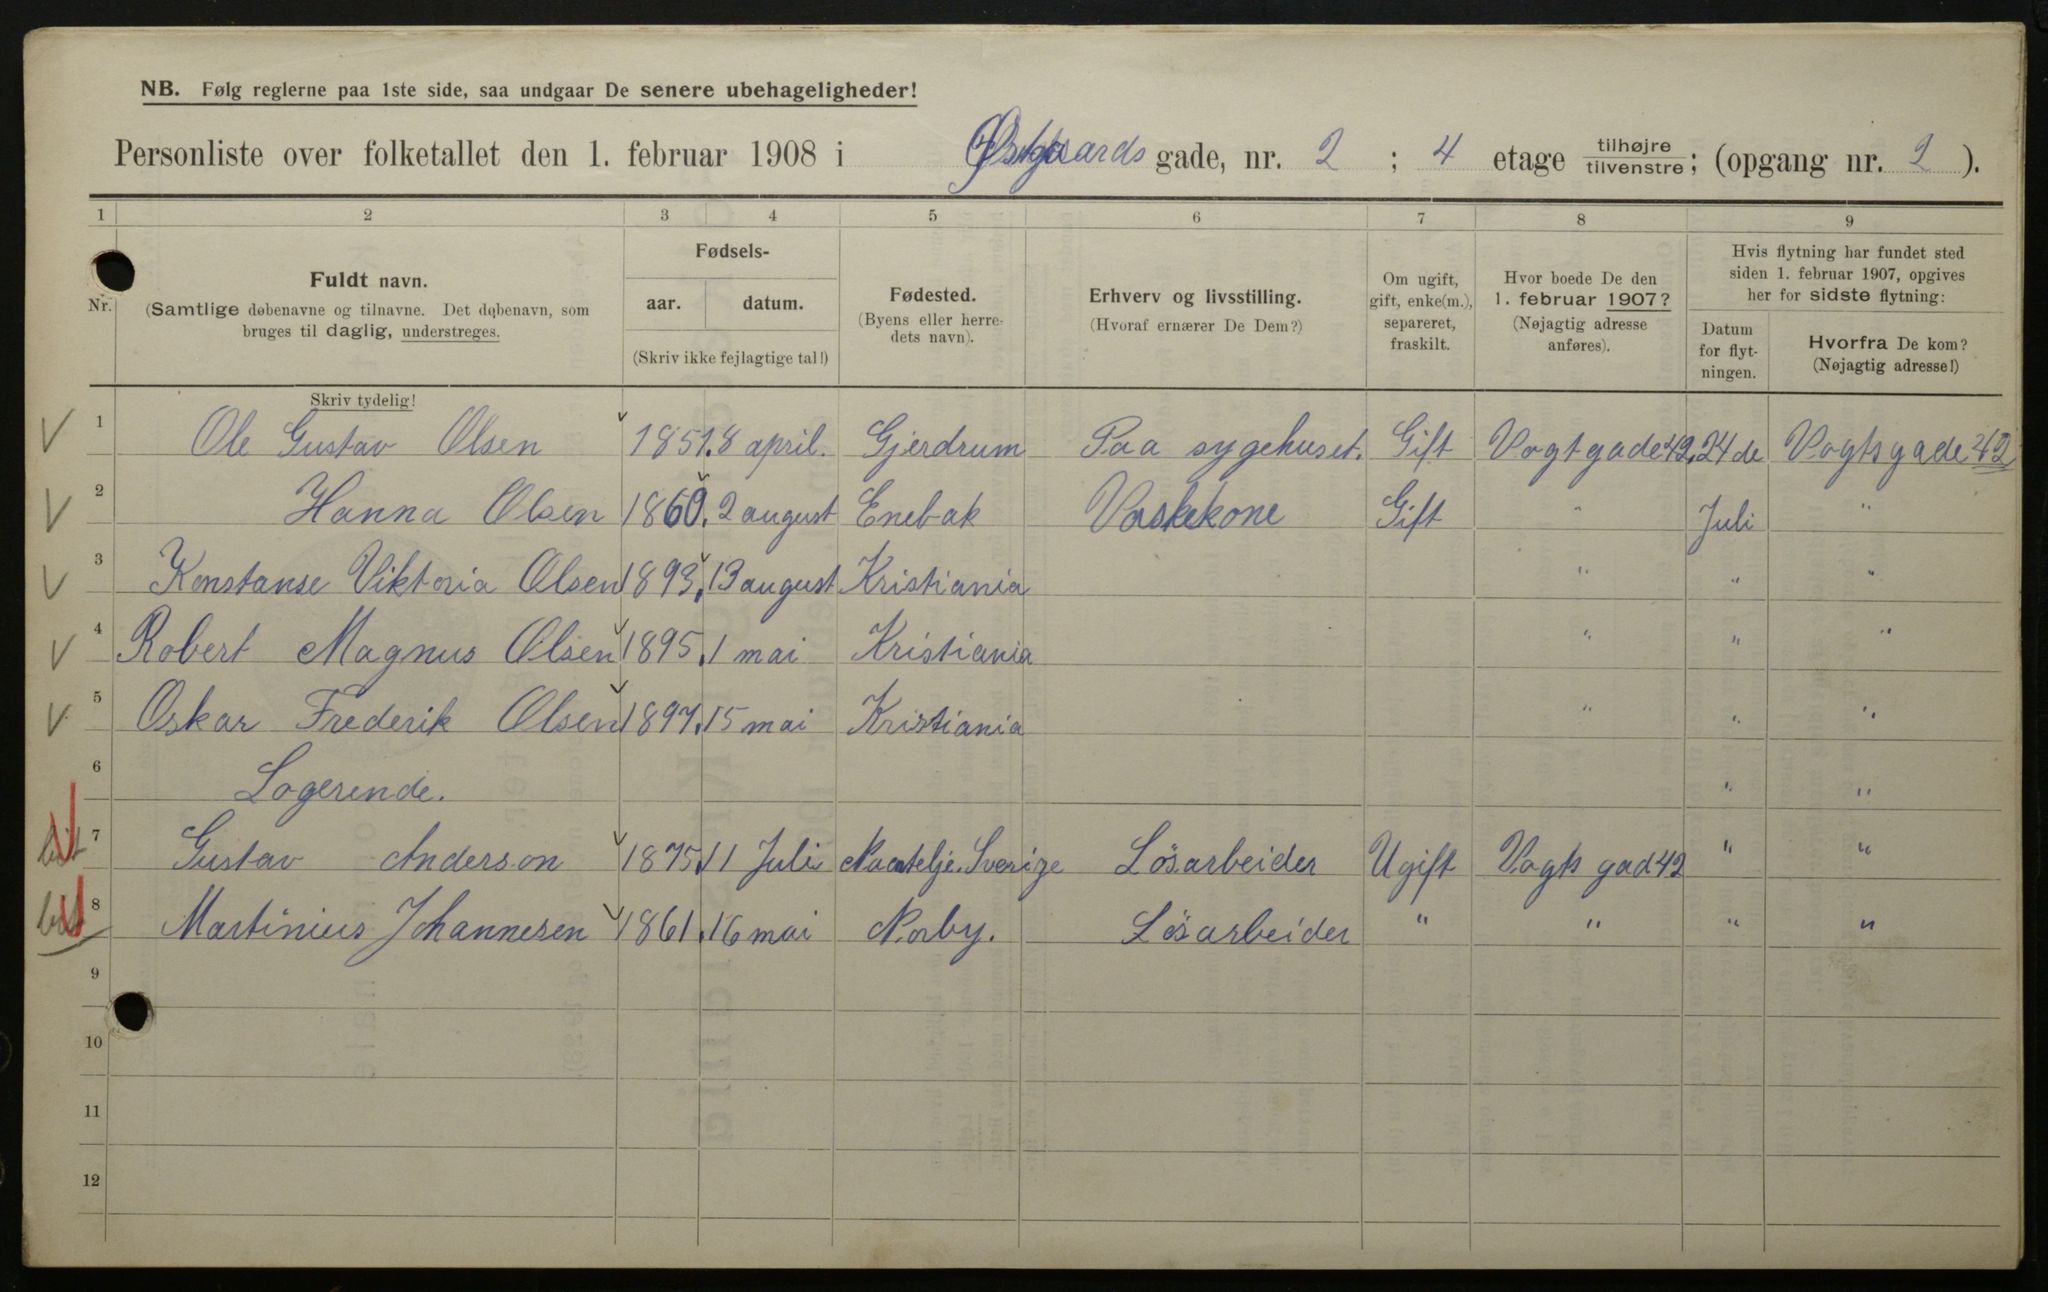 NB. Følg reglerne paa 1ste side, saa undgaar De senere ubehageligheder!
Personliste over folketallet den 1. februar 1908 i Østgaards gade, nr. 2 ; 4 etage tilhøjre tilvenstre; (opgang nr. 2 ).
1 2 3 4 5 6 7 8 9
Nr.
Fuldt navn.
(Samtlige døbenavne og tilnavne. Det døbenavn, som
bruges til daglig, understreges.
Skriv tydelig!
Fødsels-
aar. datum.
(Skriv ikke fejlagtige tal!)
Fødested.
(Byens eller herre-
dets navn).
Erhverv og livsstilling.
(Hvoraf ernærer De Dem?)
Om ugift,
gift, enke(m.),
separeret,
fraskilt.
Hvor boede De den
1. februar 1907?
(Nøjagtig adresse
anføres).
Hvis flytning har fundet sted
siden 1. februar 1907, opgives
her for sidste flytning:
Datum
for flyt-
ningen.
Hvorfra De kom?
(Nøjagtig adresse!)
1 Ole Gustav Olsen 1851. 8 april. Gjerdrum Paa sygehuset. Gift Vogtgade 42. 24 de Vogtsgade 42
2 Hanna Olsen 1860. 2 august Enebak Vaskekone Gift " Juli "
3 Konstanse Viktoria Olsen 1893. 13 august Kristiania " " "
4 Robert Magnus Olsen 1895. 1 mai Kristiania " " "
5 Oskar Frederik Olsen 1897. 15 mai Kristiania " " "
6 Logerende. " "
7 Gustav Anderson 1875. 11 Juli Sverige Løsarbeider Ugift Vogts gad 42 " "
8 Martinius Johannesen 1861. 16 mai Norby. Løsarbeider " " " "
9
10
11
12